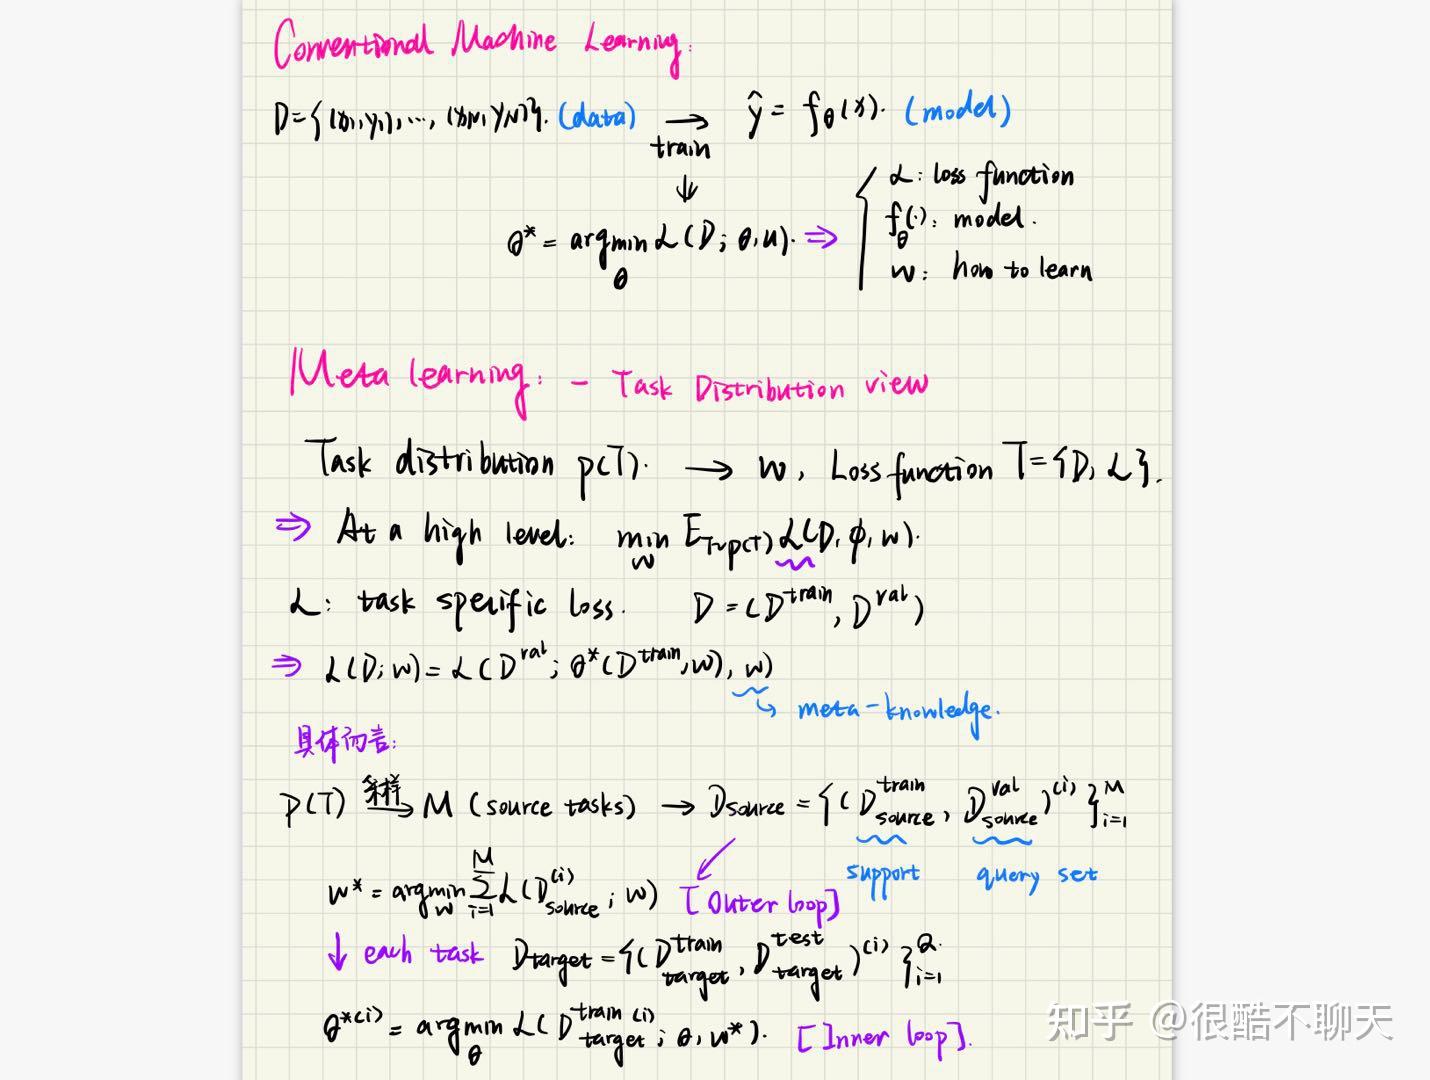 Conventional Machine Learning:
D={(x1,y1),..., (xN,yN)}. (data) → ŷ = fθ(x). (model)
train
↓
θ* = argmin L(D; θ,w). ⇒
θ
L: loss function
fθ(·): model.
w: how to learn
Meta learning: - Task Distribution view
Task distribution p(T). → w, Loss function T={D, L}.
⇒ At a high level: min E_{T~p(T)} L(D, φ, w).
w
L: task specific loss. D = (D^train, D^val)
⇒ L(D; w) = L(D^val; θ*(D^train, w), w)
↳ meta-knowledge.
具体而言:
p(T) 采样→ M (source tasks) → D_source = {(D^train_source, D^val_source)^(i)}^M_{i=1}
support query set
w* = argmin_w Σ^M_{i=1} L(D^(i)_source; w) [Outer loop]
↓ each task D_target = {(D^train_target, D^test_target)^(i)}^Q_{i=1}
θ*^(i) = argmin_θ L(D^train (i)_target; θ, w*). [Inner loop].
知乎 @很酷不聊天